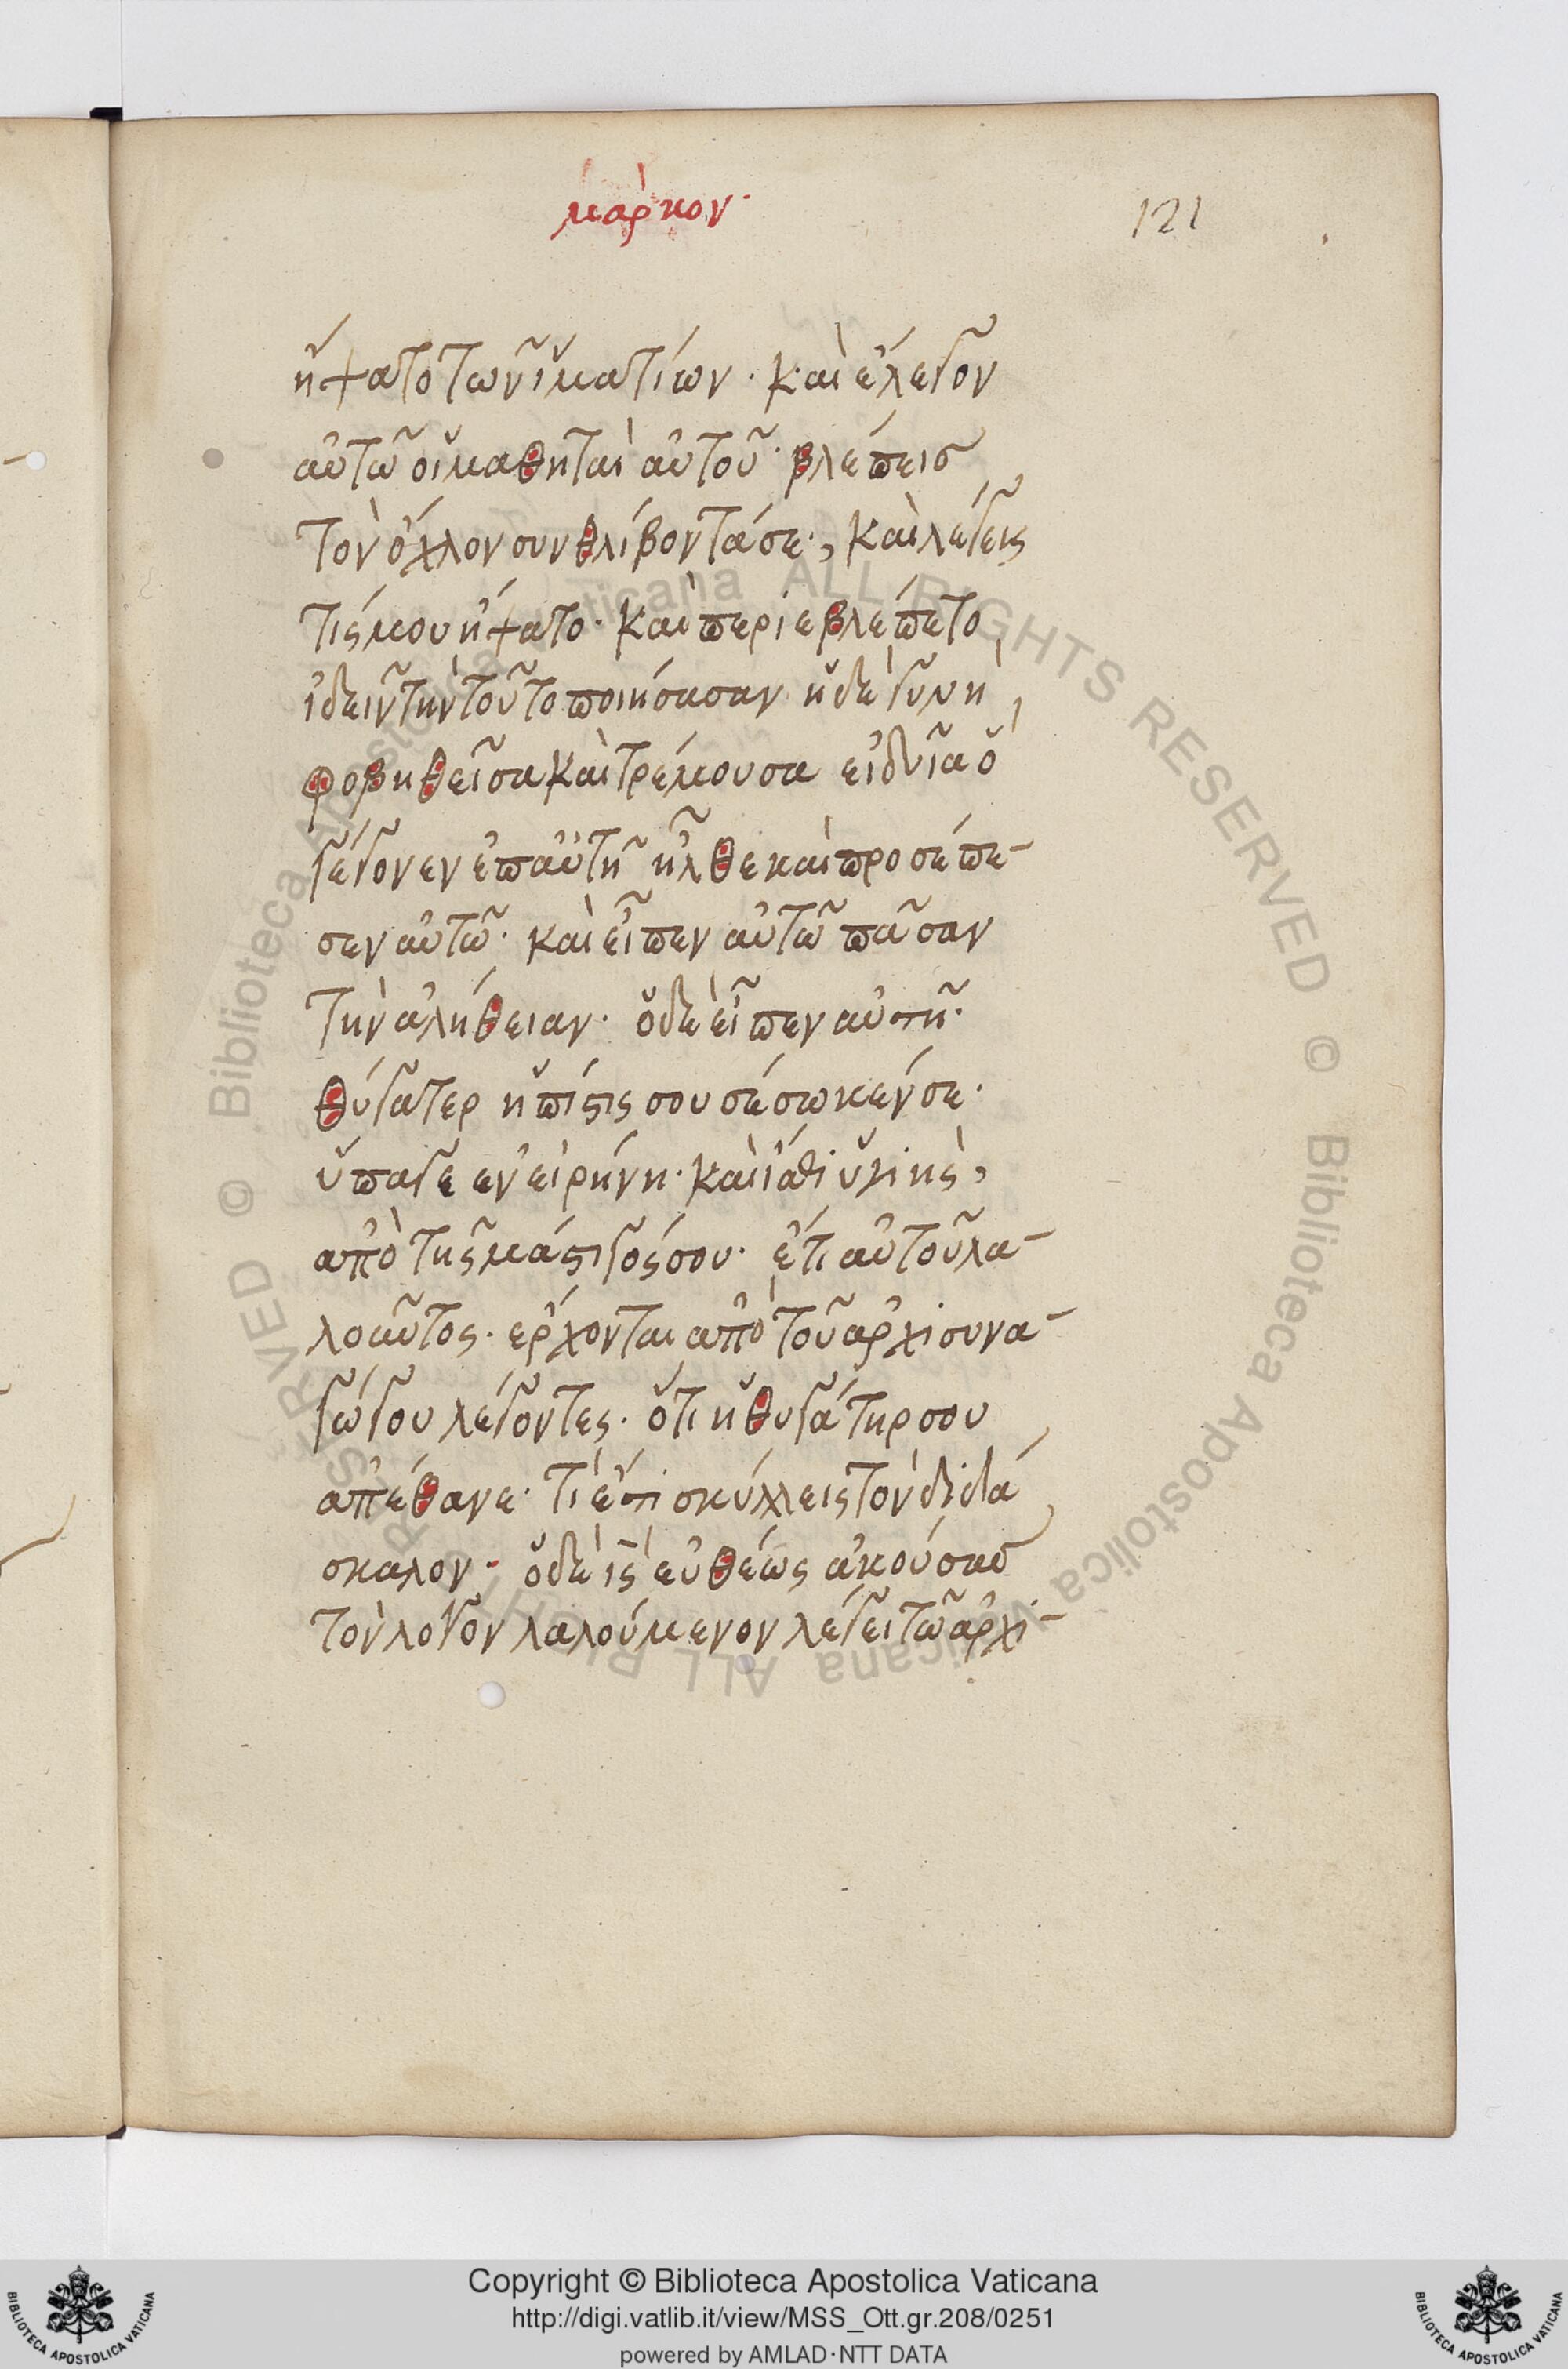 μάρκον·
121
ἥψατο τῶν ἱματίων· καὶ ἔλεγον
αὐτῶ οἱ μαθηταὶ αὐτοῦ· βλέπεισ
τὸν ὄχλον συνθλίβοντά σε·, καὶ λέγεις
τίς μου ἥψατο· καὶ περιεβλέπετο
ἰδεῖν τὴν τοῦτο ποιήσασαν ἡ δὲ γυνὴ
φοβηθεῖσα καὶ τρέμουσα εἰδυῖα ὃ
γέγονεν ἐπ αὐτῆ ἦλθε καὶ προσέπε-
σεν αὐτῶ· καὶ εἶπεν αὐτῶ πᾶσαν
τὴν ἀλήθειαν· ὁ δὲ εἶπεν αὐτῆ·
θύγατερ ἡ πίστις σου σέσωκέν σε·
ὕπαγε ἐν εἰρήνη· καὶ ἴσθι ὑγιὴς,
ἀπὸ τῆς μάστιγός σου· ἔτι αὐτοῦ λα-
λοαῦτος· ἔρχονται ἀπὸ τοῦ ἀρχισυνα-
γώγου λέγοντες· ὅτι ἡ θυγάτηρ σου
ἀπέθανε· τί ἔτι σκύλλεις τὸν διδά
σκαλον· ὁ δὲ ἰς εὐθέως ἀκούσασ
τὸν λόγον λαλούμενον λέγει τῶ ἀρχι-
Copyright © Biblioteca Apostolica Vaticana
http://digi.vatlib.it/view/MSS_Ott.gr.208/0251
powered by AMLAD·NTT DATA
BIBLIOTECA APOSTOLICA VATICANA
BIBLIOTECA APOSTOLICA VATICANA
© Biblioteca Apostolica Vaticana ALL RIGHTS RESERVED © Biblioteca Apostolica Vaticana ALL RIGHTS RESERVED